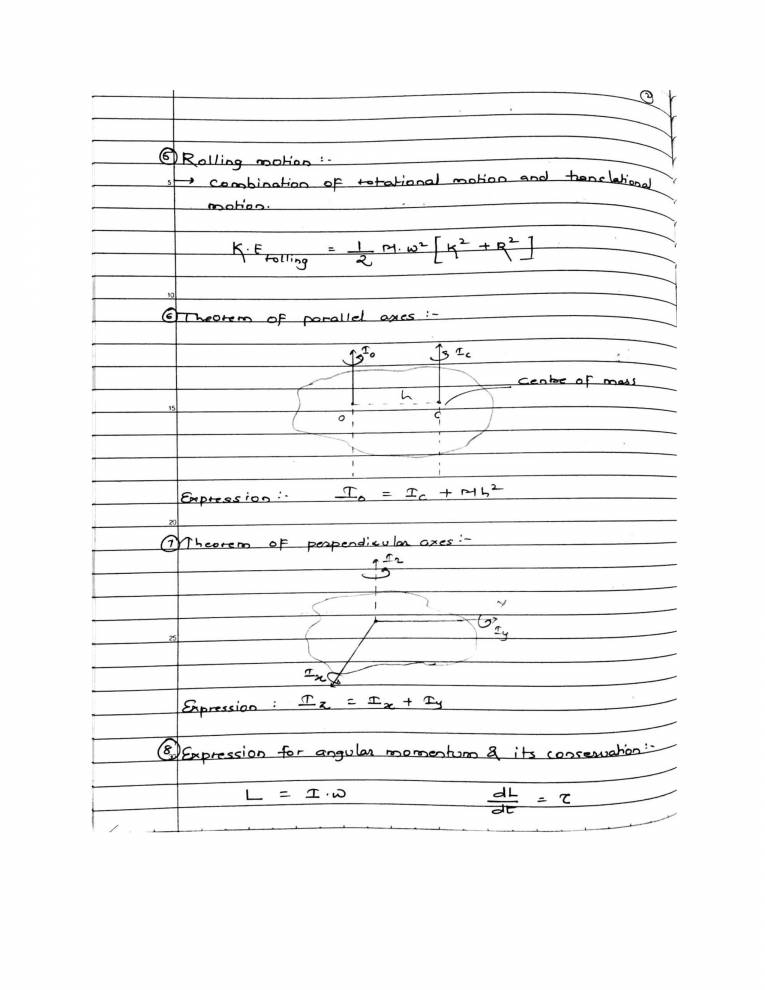 2
⑤ Rolling motion :-
5 → combination of rotational motion and translational
motion.
K.E rolling = 1/2 M.ω² [K² + R²]
10
⑥ Theorem of parallel axes :-
I₀ I_c
Centre of mass
h
15
O C
Expression :- I₀ = I_c + Mh²
20
⑦ Theorem of perpendicular axes :-
I_z
Y
I_y
25
I_x
Expression : I_z = I_x + I_y
⑧ Expression for angular momentum & its conservation :-
L = I.ω dL/dt = τ